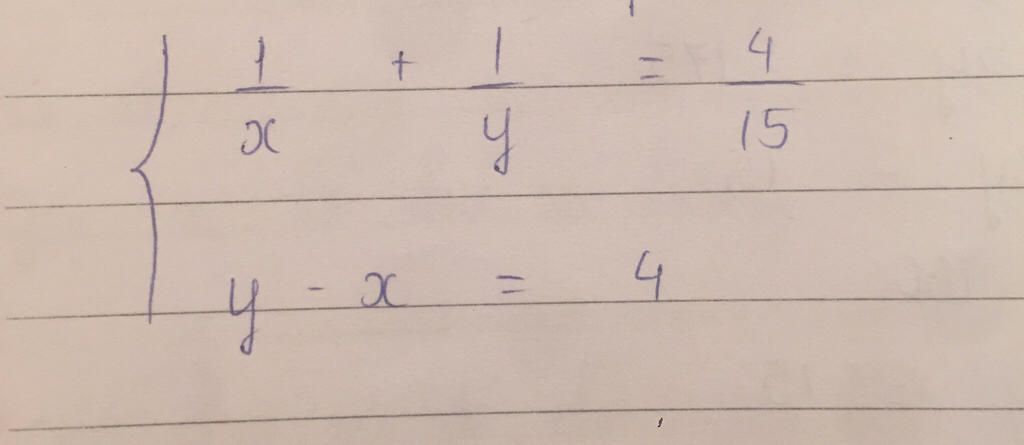 1/x + 1/y = 4/15
y - x = 4